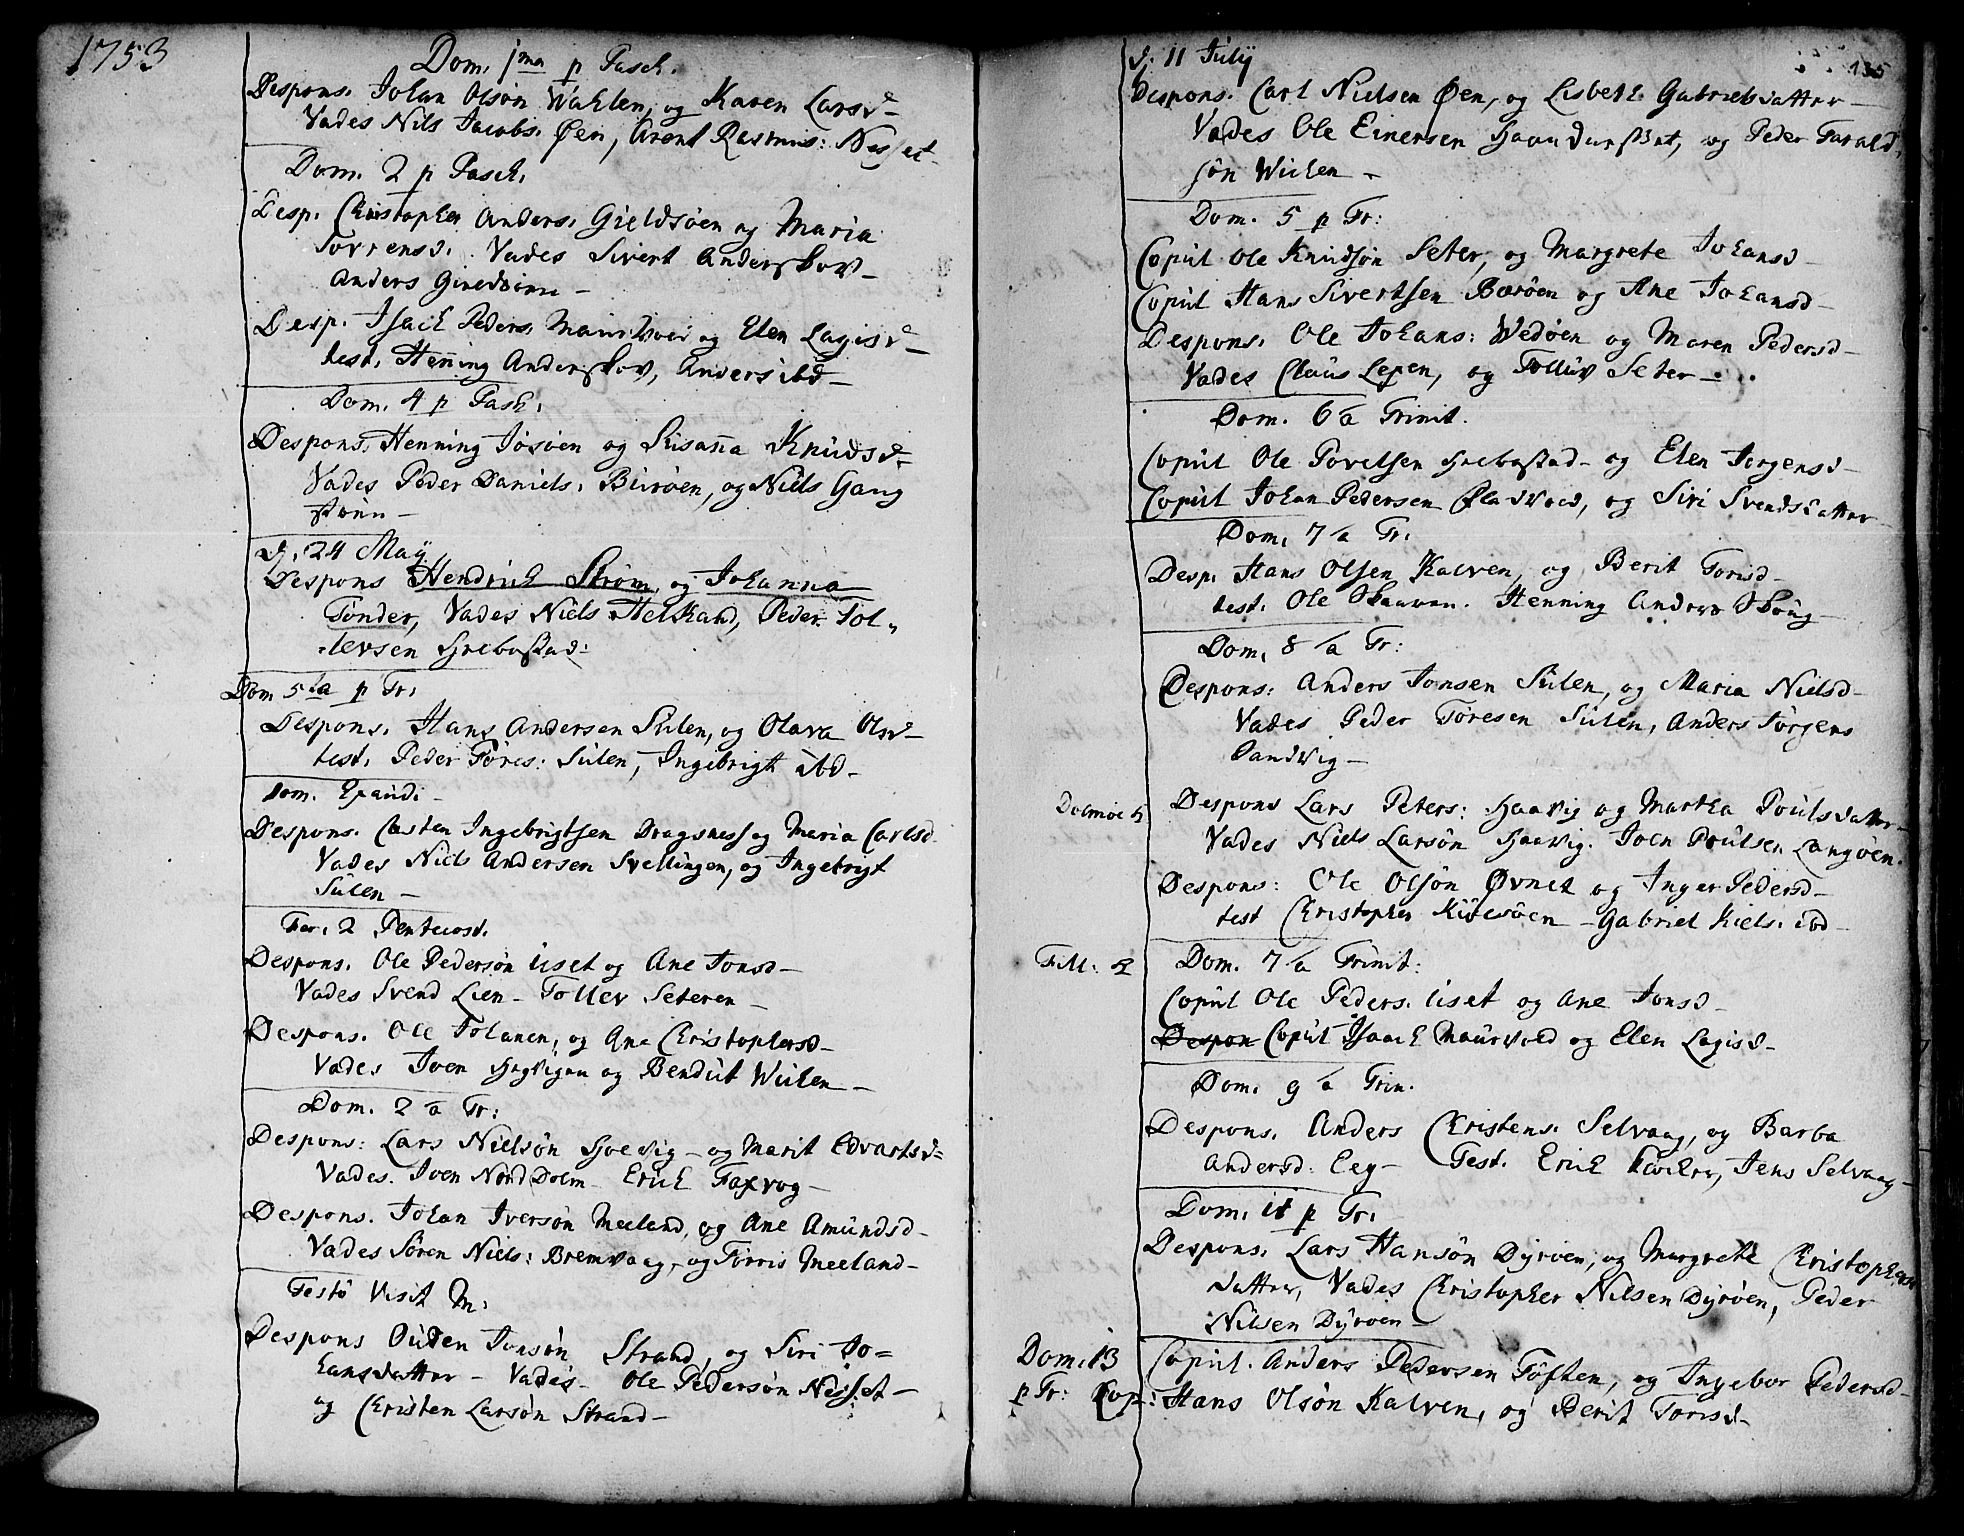 1753
Dom. 1ma p Pasch.
Despons. Johan Olsøn Wahlen, og Karen Larsd
Vades Nils Jacobs. Øen, Arent Rasmus: Nesset
Dom. 2 p Pasch.
Desp. Christopher Anders. Gieldsøen og Maria
Torrensd. Vades Sivert Anderskov
Anders
Desp. Isach Peders. og Elen Lagisd
test. Henning Anderskov, Anders ibd
Dom. 4 p Pasch.
Despons. Henning Josøen og Susanna Knudsd
Vades Peder Daniels. Burøen, og Niels Gang
støen
d. 24 Maÿ
Despons Hendrich Strøm, og Johanna
Tønder, Vades Niels Helskand, Peder Tol-
lersen Hrebastad:
Dom 5ta p Tr.
Despons. Hans Andersen Sulen, og Olava Olsd
test. Peder Tores: Sulen, Ingebrigt ibd
Dom. Exaudi
Despons. Casten Ingebrigtsen Dragsness og Maria Carlsd
Vades Niels Andersen Svellingen, og Ingebrigt
Sulen
Fer. 2 Pentecost.
Despons. Ole Pedersøn Uset og Ane Jonsd
Vades Svend Lien - Tollev Seteren
Despons. Ole Tolanen, og Ane Christophersd
Vades Joen og Bendict Wiclen
Dom. 2 a Tr:
Despons: Lars Nielsøn - og Marit Edvartsd
Vades. Joen Nord Dolm - Erich Faxvog
Despons. Johan Iversøn Meeland, og Ane Amundsd
Vades Søren Niels: Bremvaag, og Torris Meeland
Festo Visit M:
Despons Outen Jonsøn Strand, og Siri Jo=
hansdatter - Vades - Ole Pedersøn Nesset
og Christen Larsøn Strand
135
d. 11 Julÿ
Despons. Carl Nielsen Øen, og Lisbeth Gabrielsdatter
Vades Ole Einersen og Peder Farald
søn Wiclen
Dom. 5 p Tr:
Copul Ole Knudsøn Seter, og Margrete Johansd
Copul Hans Sivertsen Barøen og Ane Johansd
Despons. Ole Johans: Wedøen og Maren Pedersd
Vades Claus Lepen, og Tolluv Seter
Dom. 6 a Trinit.
Copul Ole Povelsen Hrebastad - og Elen Jorgensd
Copul Johan Pedersen og Siri Svendsdatter
Dom. 7 a Tr.
Desp. Hans Olsen Kalven, og Berit Torisd
test. Ole Skaaren. Henning Anders Skoug
Dom. 8 a Tr:
Despons: Anders Jonsen Sulen, og Maria Nielsd
Vades Peder Toresen Sulen, Anders Jørgens
Sandvig
Dolmoe 5 Despons Lars Peters: Haavig og Martha Poulsdatter
Vades Niels Larsøn Haavig. Joen Poulsen Langøen
Despons: Ole Olsøn Øvnet og Inger Pedersd
test Christopher - Gabriel Kiels. ibd
Fill: 2 Dom. 7 a Trinit:
Copul Ole Peders. Uset og Ane Jonsd
Despon Copul Isaach Maurvold og Elen Lagisd
Dom. 9 a Trin.
Despons. Anders Christens. Selvaag, og Barba
Andersd: Eeg - Test. Erich Jens Selvaag
Dom. 11 p Tr.
Despons. Lars Hansøn Dyrøen, og Margrete Christophers
datter, Vades Christopher Nilsen Dyrøen, Peder
Nilsen Dyroen
Dom. 13 Copul. Anders Pedersen Toften, og Ingebor Pedersd
p Tr: Cop: Hans Olsøn Kalven, og Berit Torisd